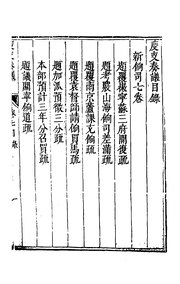 度支奏議目錄
新餉司七卷
題覆徽寧蘇三府開復疏
題考覈山海餉司差滿疏
題覆南京蓋課充餉疏
題覆袁督師請倒買馬疏
題加派預徵三分疏
本部預計三年分召買疏
題議開寧餉道疏